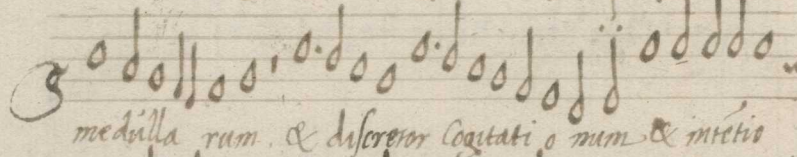 medulla rum. & discretor Cogitati o num & intētio